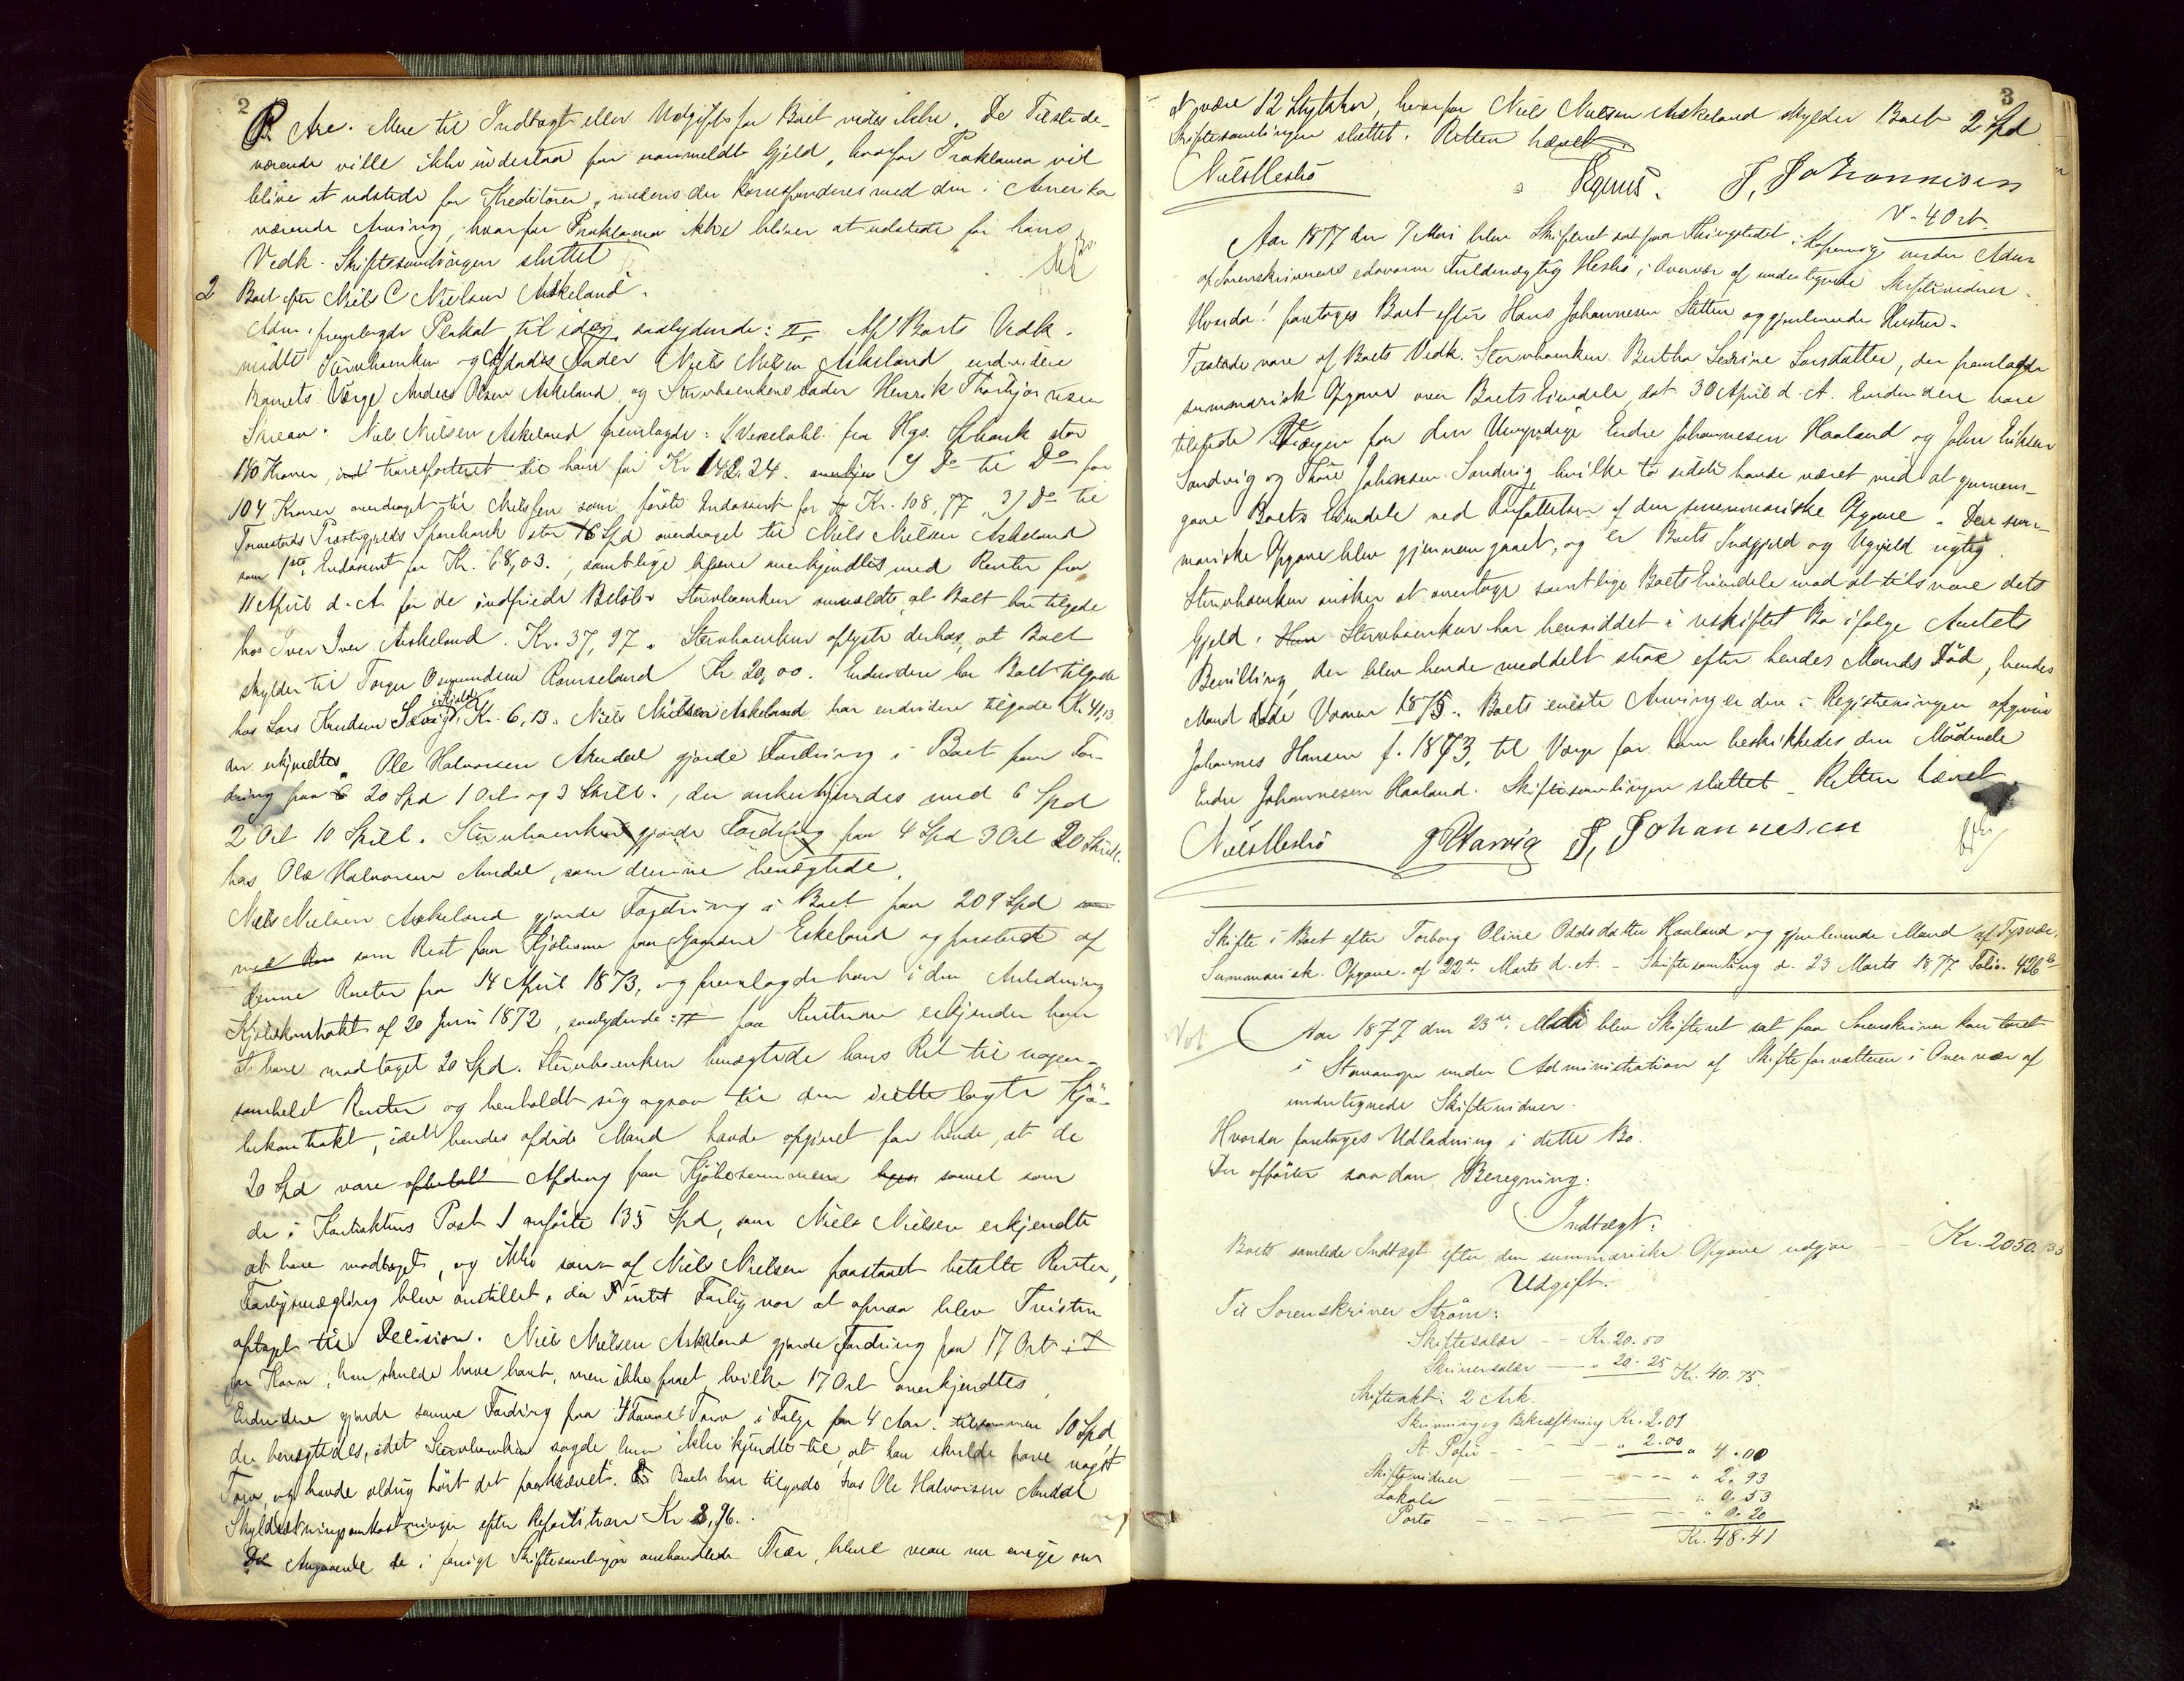 2
Are. Mere til Indtægt eller Udgift for Boet vides ikke. De Tilstede-
værende ville ikke indestaa for uanmeldt Gjeld, hvorfor Proklama vil
blive at udstede for Kreditorer, medens der korresponderes med den i Amerika
værende Arving, hvorfor Proklama ikke bliver at udstede for hans
Vedk. Skiftesamlingen sluttet
2 Boet efter Niels C Nielsen Askeland.
Adm. fremlagde Plakat til idag saalydende: II, Af Boets Vedk.
mødte Stervboenken og Afdødes Fader Niels Nielsen Askeland endvidere
Barnets Værge Anders Olsen Askeland og Stervboenkens Fader Henrik Thorbjørnsen
Niels Nielsen Askeland fremlagde: 1/ Vexelobl. fra Hgs. Spbank stor
140 Kroner, transporteret til ham for Kr 142.24. 2/ Do til Do for
104 Kroner overdraget til Nielsen som første Endossent for Kr. 108,77, 3) Do til
Torvestads Præstegjelds Sparebank stor 16 Spd overdraget til Niels Nielsen Askeland
som 1ste Endossent for Kr. 68,03., samtlige bleve anerkjendte med Renter fra
11 April d. A. for de indfriede Beløb. Stervboenken anmeldte, at Boet har tilgode
hos Iver Iver Askeland. Kr. 37,97. Stervboenken oplyste derhos, at Boet
skylder til Torger Osmundsen Ramseland Kr. 20,00. Endvidere har Boet tilgode
hos Lars Knudsen Kr. 6,13. Niels Nielsen Askeland har endvidere tilgode Kr. 41,13
der erkjendtes. Ole Halvorsen Amdal gjorde Fordring i Boet paa For-
dring paa 20 Spd 1 Ort og 3 Skill., der anerkjendes med 6 Spd
2 Ort 10 Skill. Stervboenken gjorde Fordring paa 4 Spd 3 Ort 20 Skill.
hos Ole Halvorsen Amdal, som denne benægtede.
Niels Nielsen Askeland gjorde Fordring i Boet paa 209 Spd
som Rest paa Kjøbesum paa Gaarden Eskeland og paastod af
denne Renter fra 14 April 1873, og fremlagde han i den Anledning
Kjøbekontrakt af 20 Juni 1872, saalydende: paa Renterne erkjender han
at have modtaget 20 Spd. Stervboenken benægtede hans Ret til nogen-
somhelst Renter og henholdt sig ogsaa til den irettelagte Kjø-
bekontrakt, idet hendes afdøde Mand havde opgivet for hende, at de
20 Spd vare Afdrag paa Kjøbesummen saavel som
de i Kontraktens Post 1 anførte 135 Spd, som Niels Nielsen erkjendte
at have modtaget, og ikke som af Niels Nielsen paastaaet betalte Renter,
Forligsmægling blev anstillet, da intet Forlig var at opnaa blev Tvisten
optaget til Decision. Niels Nielsen Askeland gjorde Fordring paa 17 Ort
for Korn, han skulde have havt, men ikke faaet hvilke 17 Ort anerkjendtes.
Endvidere gjorde samme Fordring paa 4 Favne Torv i Følge for 4 Aar. tilsammen 10 Spd
der benægtedes, idet Stervboenken sagde hun ikke kjendte til, at han skulde have noget
Torv, og havde aldrig hørt det paakrævet. Boet har tilgode hos Ole Halvorsen Amdal
Skyldsætningsomkostninger efter Repartition Kr 3,96.
Angaaende de i forrige Skiftesamling omhandlede Trær, bleve man nu enige om
3
at være 12 Stykker, hvorfor Niels Nielsen Askeland skylder Boet 2 Spd
Skiftesamlingen sluttet. Retten hævet
Niels Meshø J, Johannesen
V - 4 Ort.
Aar 1877 den 7 Mai blev Skifteret sat paa Thingstedet i Kopervig under Adm.
af Sorenskriverens edsvorne Fuldmægtig Meshø i Overvær af undertegnede Skiftevidner.
Hvorda! foretoges Boet efter Hans Johannesen Sletten og gjenlevende Hustru.
Tilstede vare af Boets Vedk. Stervboenken Bertha Serine Larsdatter, der fremlagde
summarisk Opgave over Boets Eiendele, dat 30 April d. A. Endvidere vare
tilstede Værgen for den Umyndige Endre Johannesen Haaland og John Eriksen
Sandvig og Thore Johnsen Sandvig, hvilke to sidste havde været med at gjennem-
gaae Boets Eiendele ved Forfattelsen af den summariske Opgave. Den sum-
mariske Opgave blev gjennemgaaet, og er Boets Indgjeld og Udgjeld rigtig.
Stervboenken ønsker at overtage samtlige Boets Eiendele mod at tilsvare dets
Gjeld. Stervboenken har hensiddet i uskiftet Bo ifølge Amtets
Bevilling, der blev hende meddelt strax efter hendes Mands Død, hendes
Mand døde Vaaren 1875. Boets eneste Arving er den i Registreringen opgivne
Johannes Hansen f. 1873, til Værge for ham beskikkedes den Mødende
Endre Johannesen Haaland. Skiftesamlingen sluttet - Retten hævet.
Niels Meshø J, Johannesen
Skifte i Boet efter Torborg Oline Oddsdatter Haaland og gjenlevende Mand af Tysvær.
Summarisk Opgave af 22de Marts d. A. - Skiftesamling d. 23 Marts 1877 Folio. 426b
Not
Aar 1877 den 23de Mai blev Skifteret sat paa Sorenskriverkontoret
i Stavanger under Administration af Skifteforvalteren i Overvær af
undertegnede Skiftevidner.
Hvorda foretoges Udlodning i dette Bo.
Der opførtes saadan Beregning:
Indtægt:
Boets samlede Indtægt efter den summariske Opgave udgjør Kr. 2050. 33
Udgift.
Til Sorenskriver Strøm:
Skiftesalær - - Kr. 20. 50
Skriversalær - - " 20. 25 Kr. 40. 75.
Skifteakt: 2 Ark.
Skrivning og Bekræftning Kr. 2.01
St. Papir - - - - " 2.00 " 4.00
Skiftevidner - - - " 2. 93
Lokale - - - " 0. 53
Porto - - - " 0. 20
Kr. 48. 41